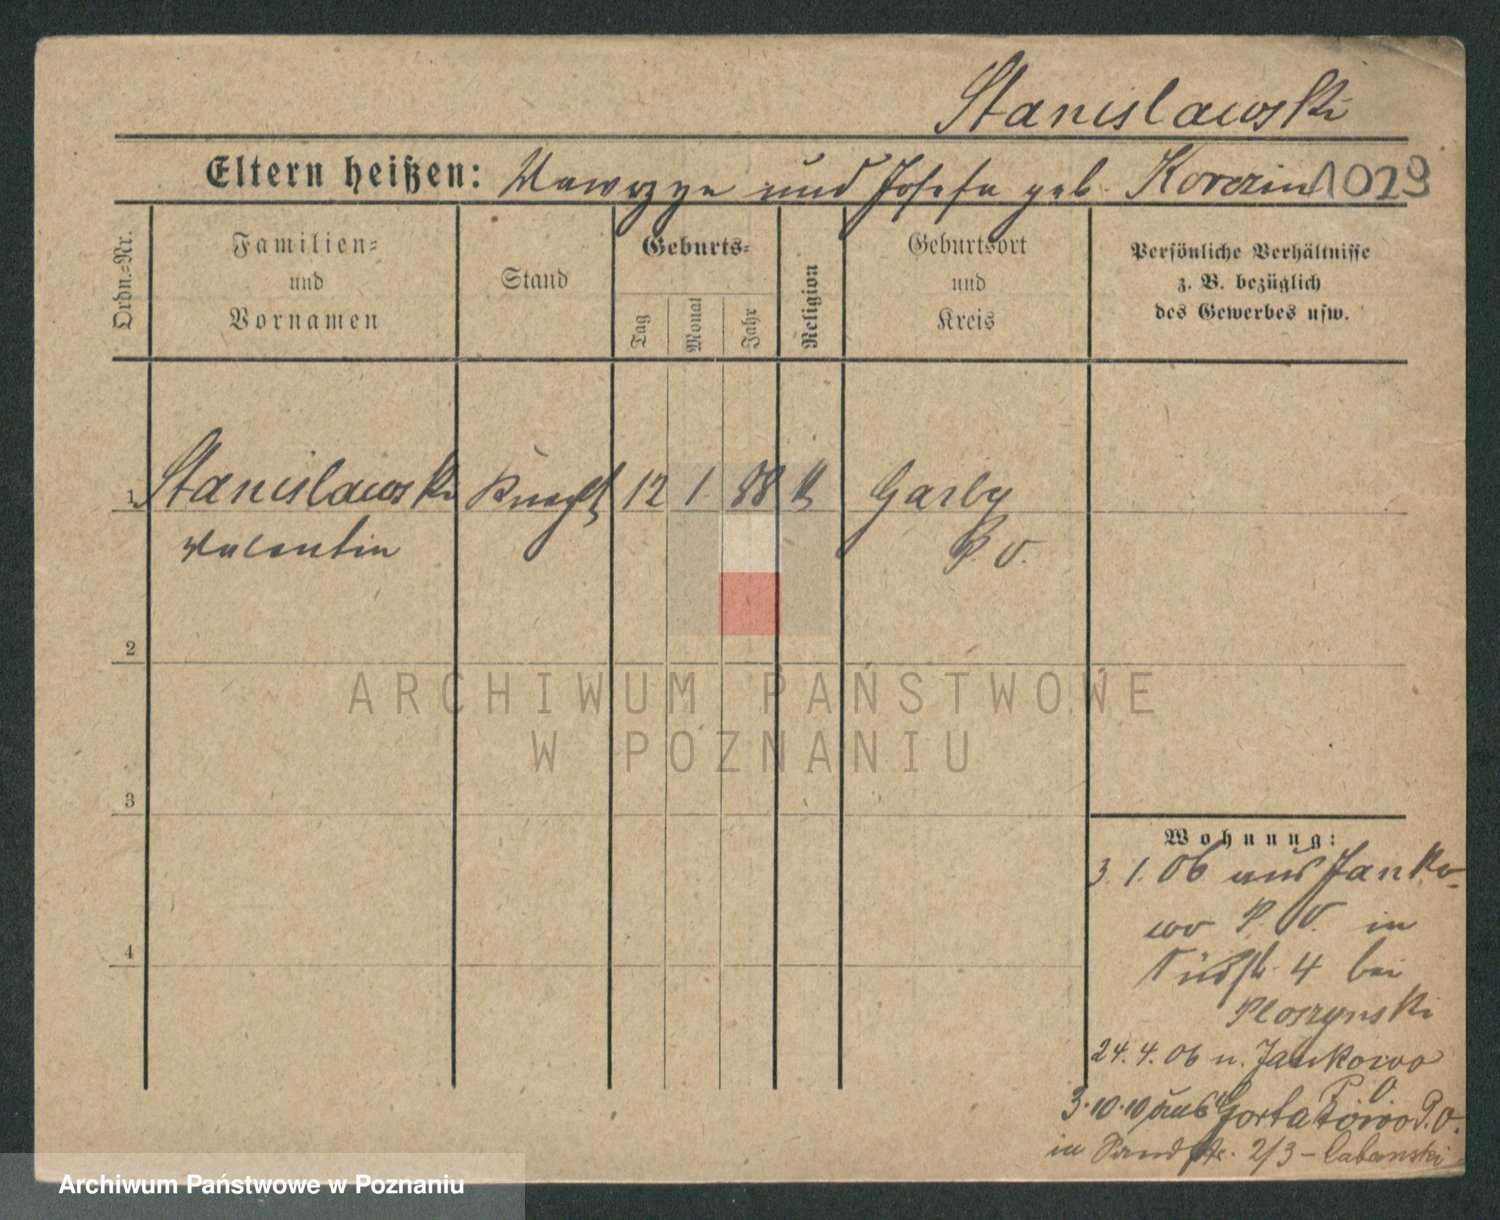 Stanislawski
Eltern heißen: Wawrzyn und Josefa geb. Korczin 1029
Ordn.-Nr.
Familien-
und
Vornamen
Stand
Geburts-
Tag
Monat
Jahr
Religion
Geburtsort
und
Kreis
Persönliche Verhältnisse
z. B. bezüglich
des Gewerbes usw.
1 Stanislawski Knecht 12 1. 88 K Garby
Valentin P. O.
2
3
4
ARCHIWUM PAŃSTWOWE
W POZNANIU
Wohnung:
3. 1. 06 aus Janko-
wo P. O. in
4 bei
Ploszynski
24. 4. 06 n. Jankowo
P. O.
3.10.10 aus Gortatowo P. O.
in Sandstr. 2/3 - Labanski
Archiwum Państwowe w Poznaniu